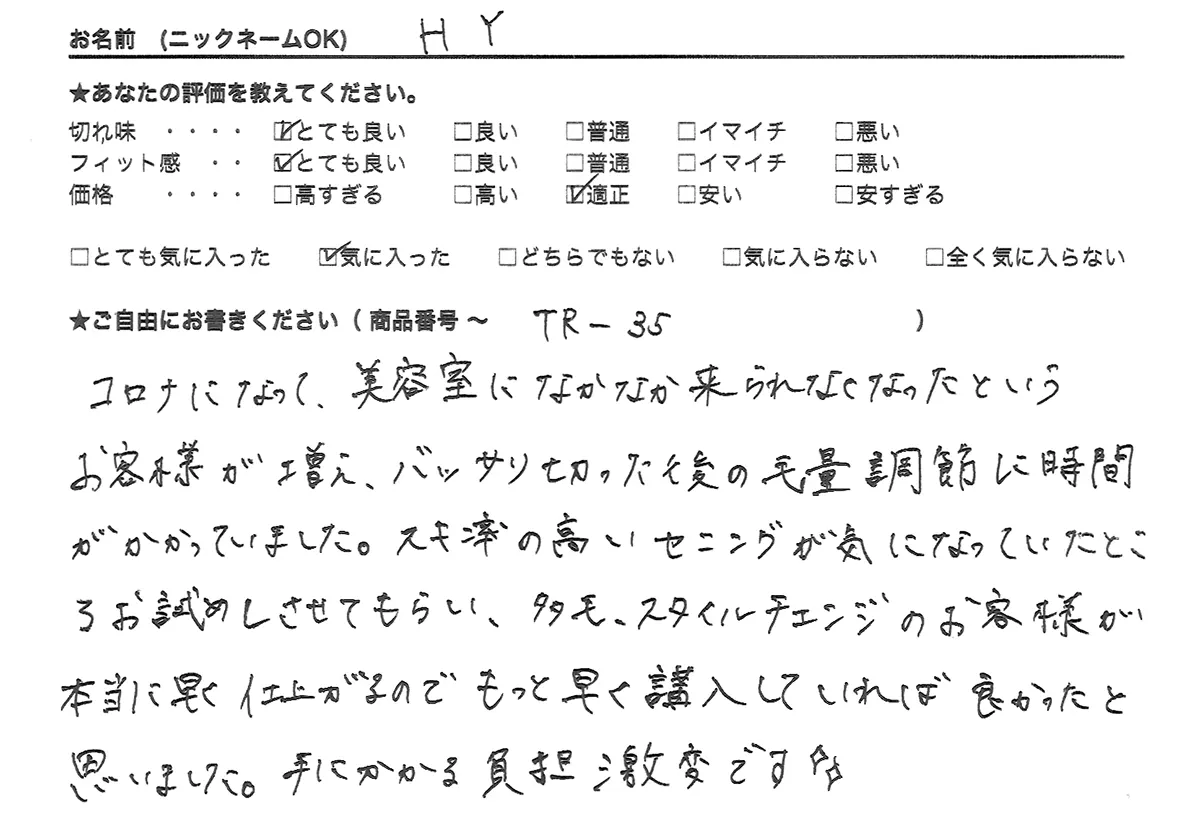 お名前 (ニックネームOK) HY
★あなたの評価を教えてください。
切れ味 ････ ☑とても良い □良い □普通 □イマイチ □悪い
フィット感 ･･ ☑とても良い □良い □普通 □イマイチ □悪い
価格 ････ □高すぎる □高い ☑適正 □安い □安すぎる
□とても気に入った ☑気に入った □どちらでもない □気に入らない □全く気に入らない
★ご自由にお書きください（ 商品番号 〜 TR-35 ）
コロナになって、美容室になかなか来られなくなったという
お客様が増え、バッサリ切った後の毛量調節に時間
がかかっていました。スキ率の高いセニングが気になっていたとこ
ろお試めしさせてもらい、多毛、スタイルチェンジのお客様が
本当に早く仕上がるのでもっと早く講入していれば良かったと
思いました。手にかかる負担激変です☆☆